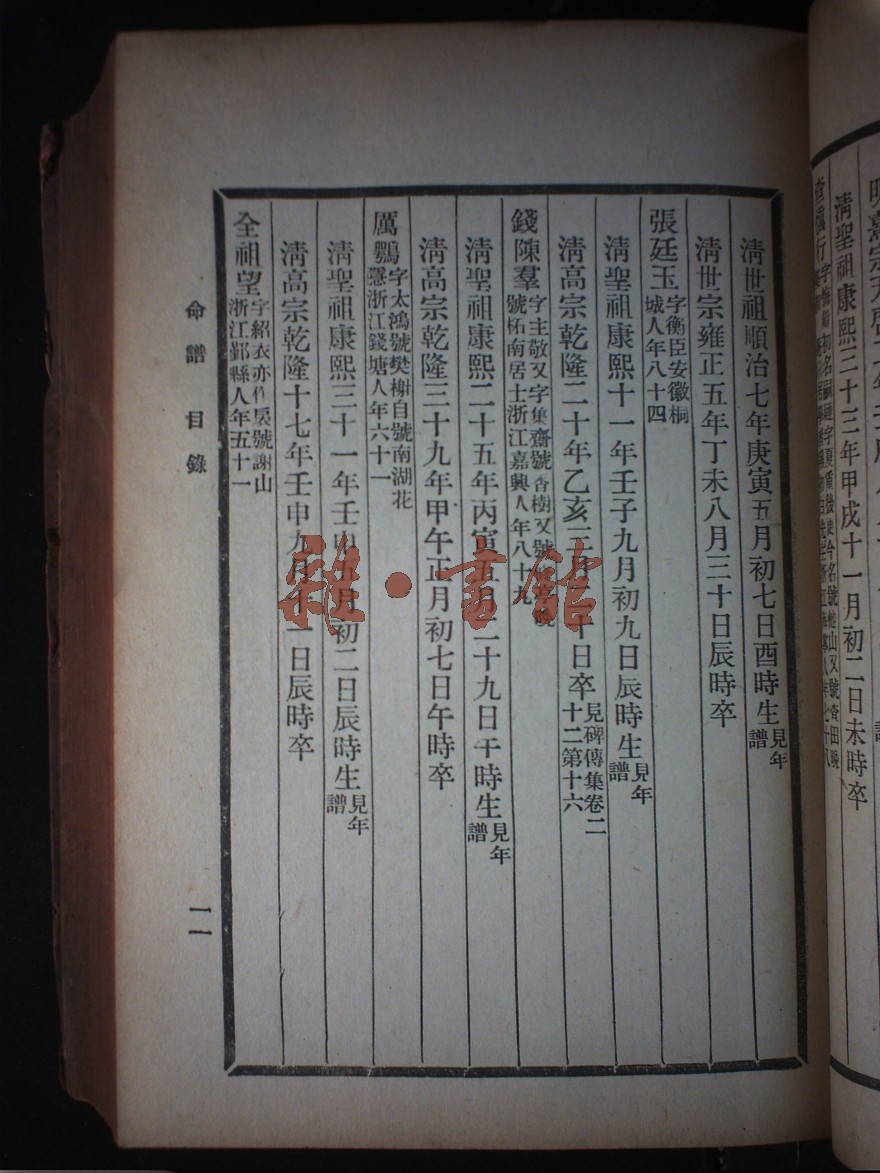 清聖祖康熙三十三年甲戌十一月初二日未時卒
清世祖順治七年庚寅五月初七日酉時生見年譜
清世宗雍正五年丁未八月三十日辰時卒
張廷玉字衡臣安徽桐城人年八十四
清聖祖康熙十一年壬子九月初九日辰時生見年譜
清高宗乾隆二十年乙亥三月二十日卒見碑傳集卷二十二第十六
錢陳羣字主敬又字集齋號香樹又號
號柘南居士浙江嘉興人年八十九
清聖祖康熙二十五年丙寅五月二十九日子時生見年譜
清高宗乾隆三十九年甲午正月初七日午時卒
厲鶚字太鴻號樊榭自號南湖花隱浙江錢塘人年六十一
清聖祖康熙三十一年壬申五月初二日辰時生見年譜
清高宗乾隆十七年壬申九月十一日辰時卒
全祖望字紹衣亦作 號謝山浙江鄞縣人年五十一
命譜 目錄
一一
雜·書館